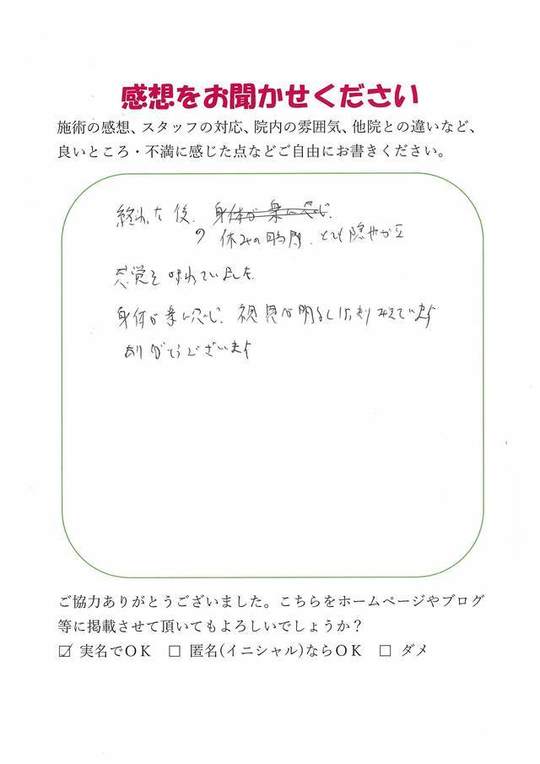 感想をお聞かせください
施術の感想、スタッフの対応、院内の雰囲気、他院との違いなど、
良いところ・不満に感じた点などご自由にお書きください。
終わた後、身体が楽に感じ
の休みの時間、とても穏やかな
感覚を味わていました
身体が楽に感じ、視界が明るくはっきりみえています
ありがとうございます
ご協力ありがとうございました。こちらをホームページやブログ
等に掲載させて頂いてもよろしいでしょうか？
☑ 実名でOK □ 匿名(イニシャル)ならOK □ ダメ